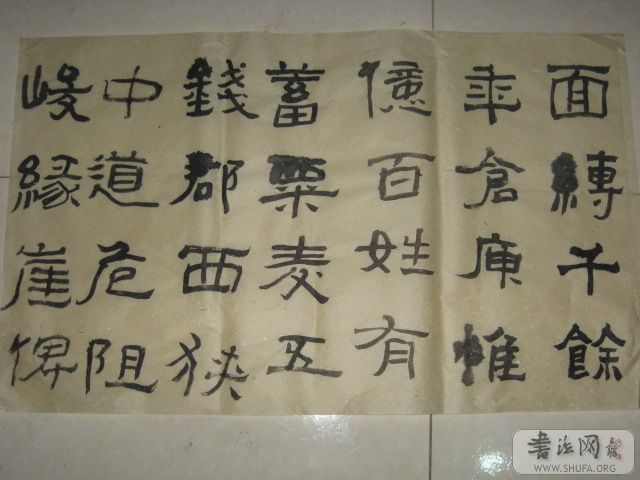 面縛千餘
年倉庾惟
億百姓有
蓄粟麦五
錢郡西狹
中道危阻
峻緣崖俾
書法网
WWW.SHUFA.ORG